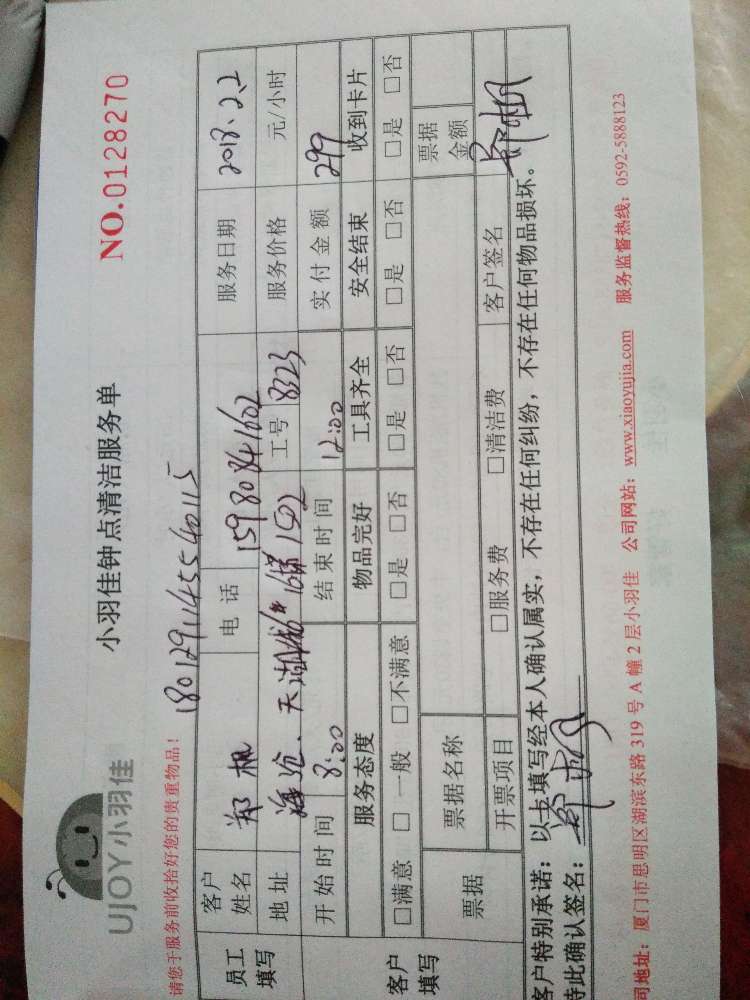 UJOY小羽佳
小羽佳钟点清洁服务单
NO.0128270
请您于服务前收拾好您的贵重物品！
18012911455540115
员工填写 客户姓名 郑枫 电话 15980841602 服务日期 2018.2.2
地址 海沧、天湖城 1502 工号 8323 服务价格 元/小时
开始时间 8:00 结束时间 12:00 实付金额 299
客户填写 服务态度 物品完好 工具齐全 安全结束 收到卡片
□满意 □一般 □不满意 □是 □否 □是 □否 □是 □否 □是 □否
票据 票据名称 票据金额
开票项目 □服务费 □清洁费 客户签名 郑枫
客户特别承诺：以上填写经本人确认属实，不存在任何纠纷，不存在任何物品损坏。
特此确认签名：郑枫
司地址：厦门市思明区湖滨东路 319 号 A 幢 2 层小羽佳 公司网站：www.xiaoyujia.com 服务监督热线：0592-5888123